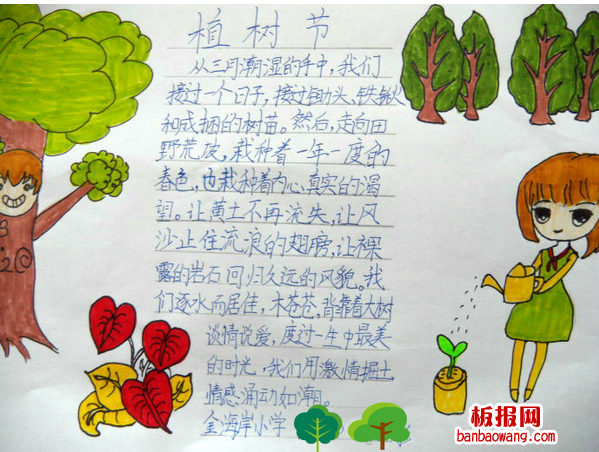 植树节
从三月潮湿的手中，我们
接过一个日子，接过锄头、铁锹
和成捆的树苗。然后，走向田
野荒坡，栽种着一年一度的
春色，也栽种着内心真实的渴
望。让黄土不再流失，让风
沙止住流浪的翅膀，让裸
露的岩石回归久远的风貌。我
们逐水而居住，木苍苍，背靠着大树
谈情说爱，度过一生中最美
的时光，我们用激情掘土，
情感涌动如潮。
金海岸小学
3
20
板报网
banbaowang.com